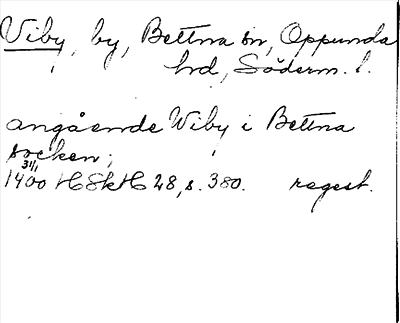 Viby, by, Bettna sn, Oppunda
hrd, Söderm. l.
angående Wiby i Bettna
socken;
31/1
1400 HSkH 28, s. 380. regest.